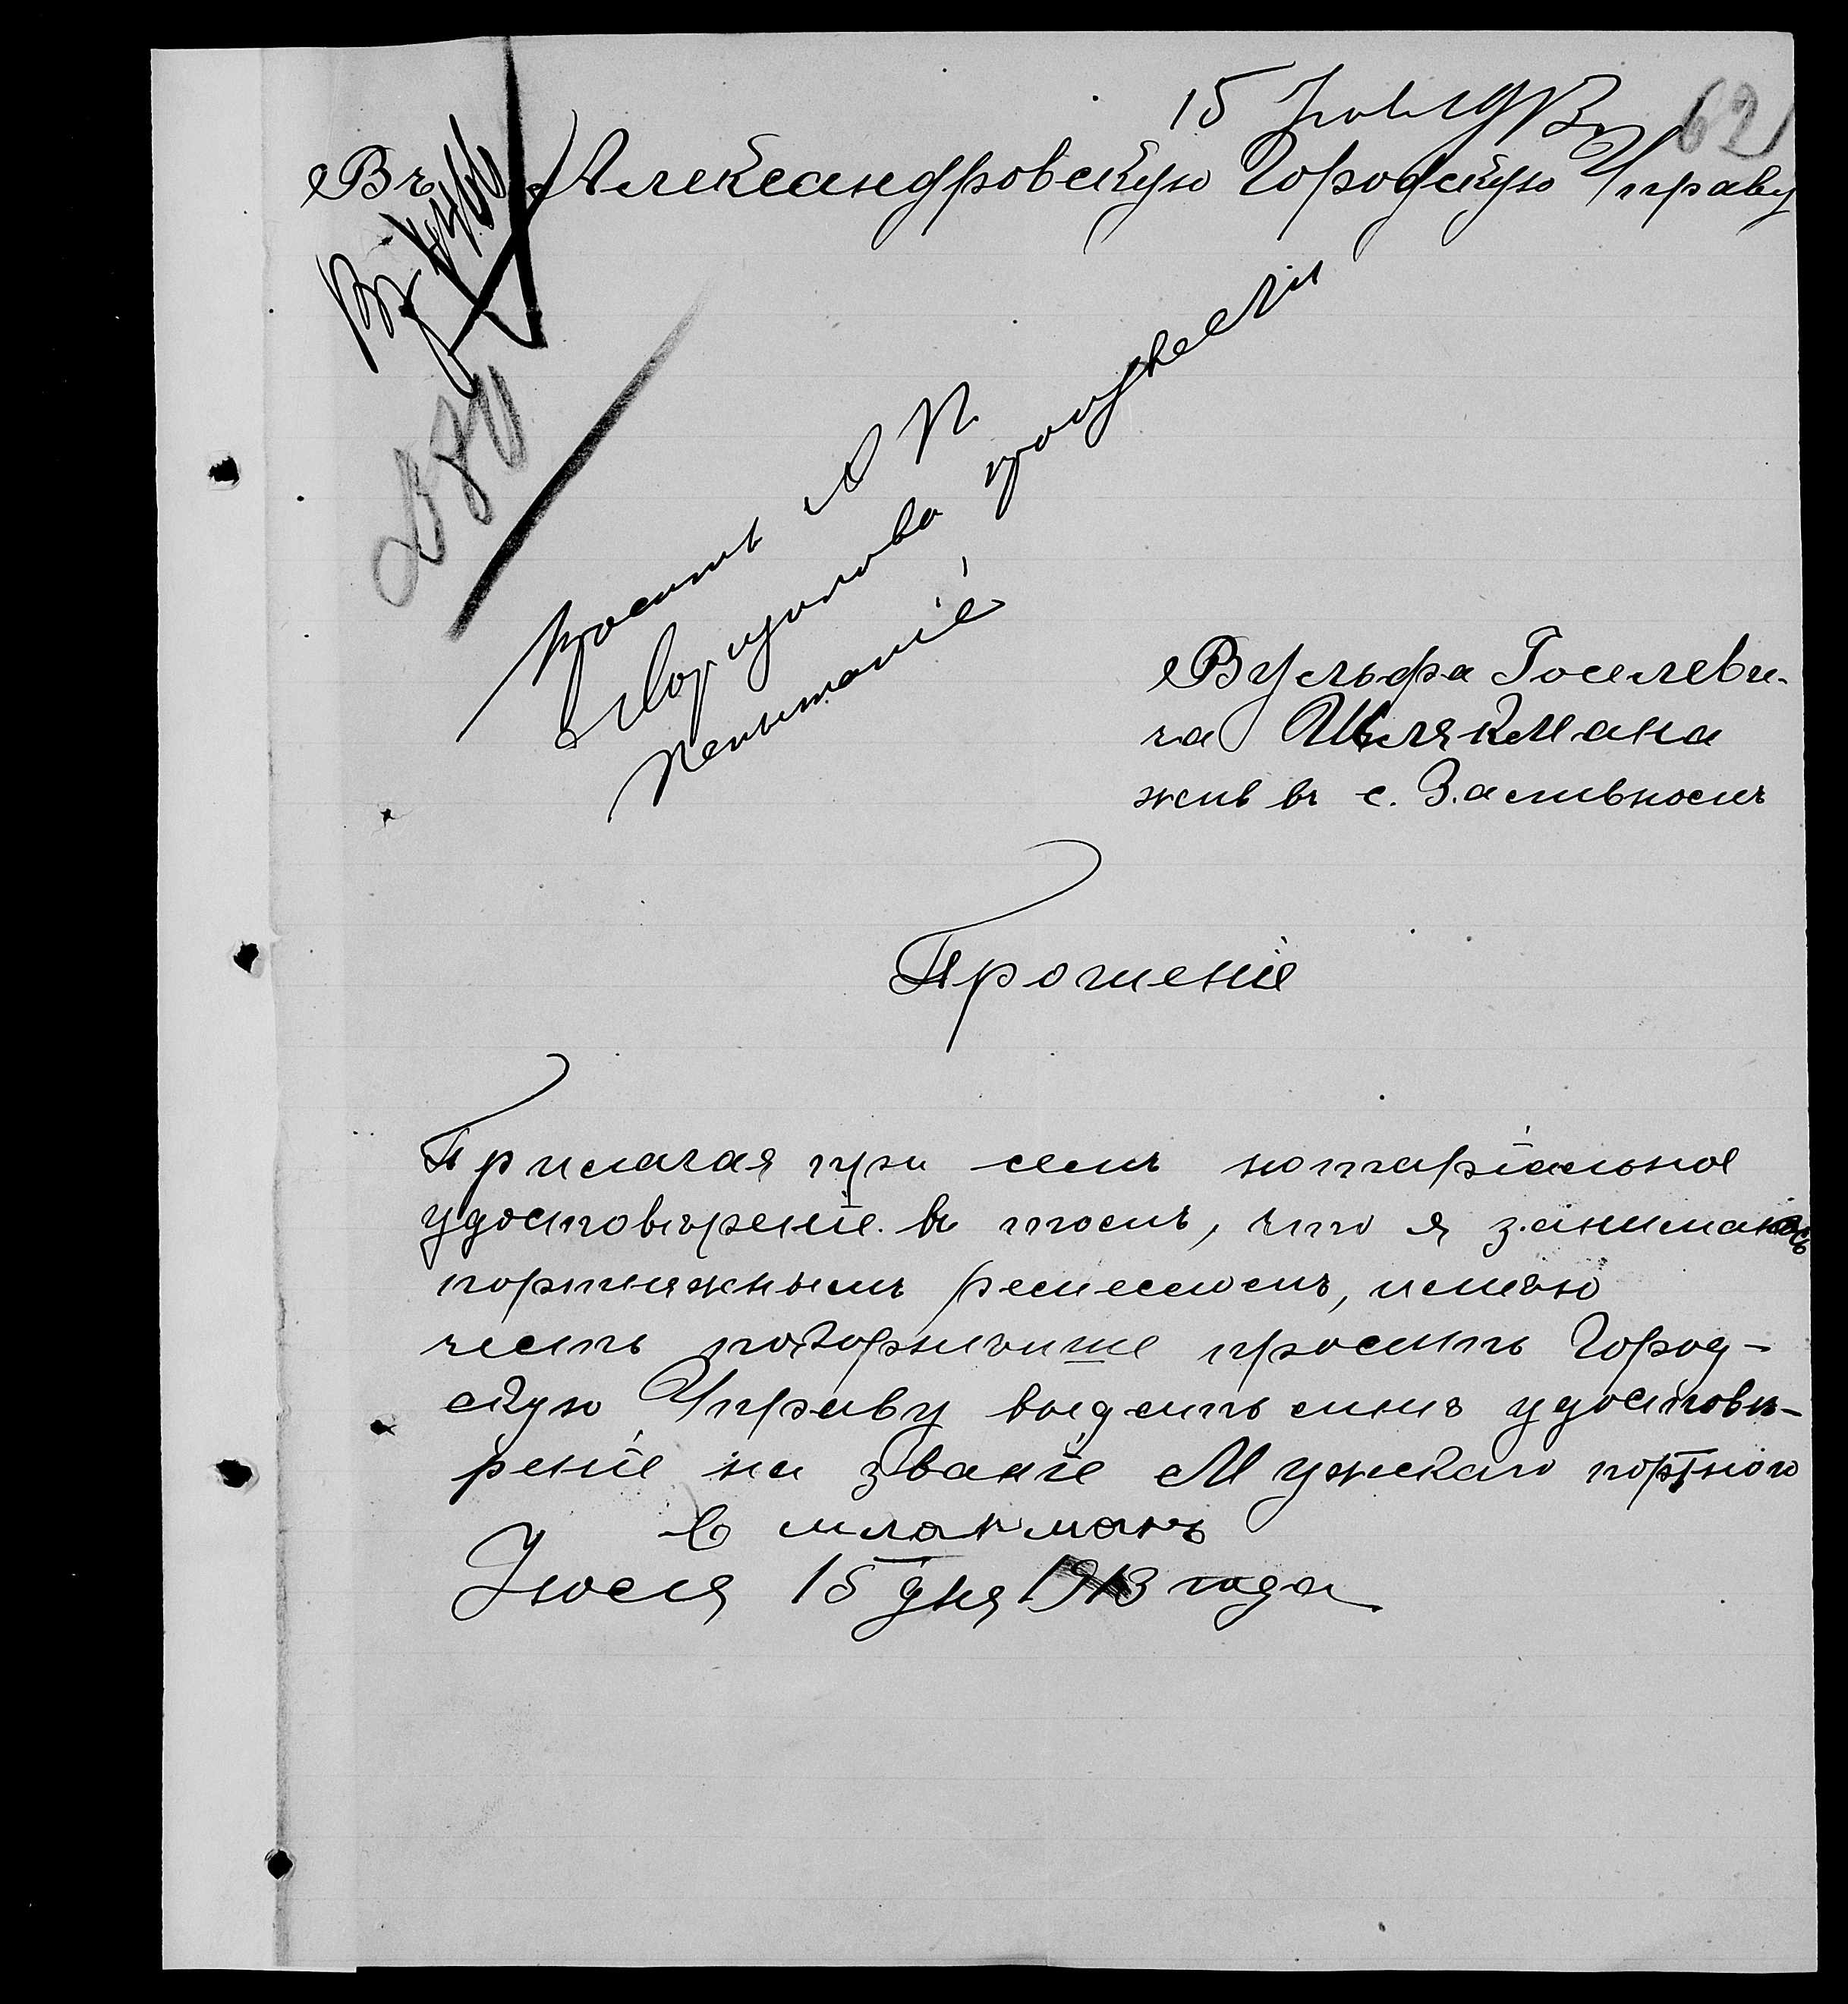 15 Іюля 1913 г
62
Въ Александровскую Городскую Управу
Просить А П
Маріуполова произвести
испытаніе
Вульфа Іоселеви-
ча Шлякмана
жив въ с. Заливномъ
Прошеніе
Прилагая при семъ нотаріальное
удостовѣреніе въ томъ, что я занимаюсь
портняжнымъ ремесломъ, имѣю
честь покорнѣише просить Город-
скую Управу выдать мнѣ удостовѣ-
реніе на званіе Мужскаго портного
В шлакманъ
Іюля 15 дня 1913 года